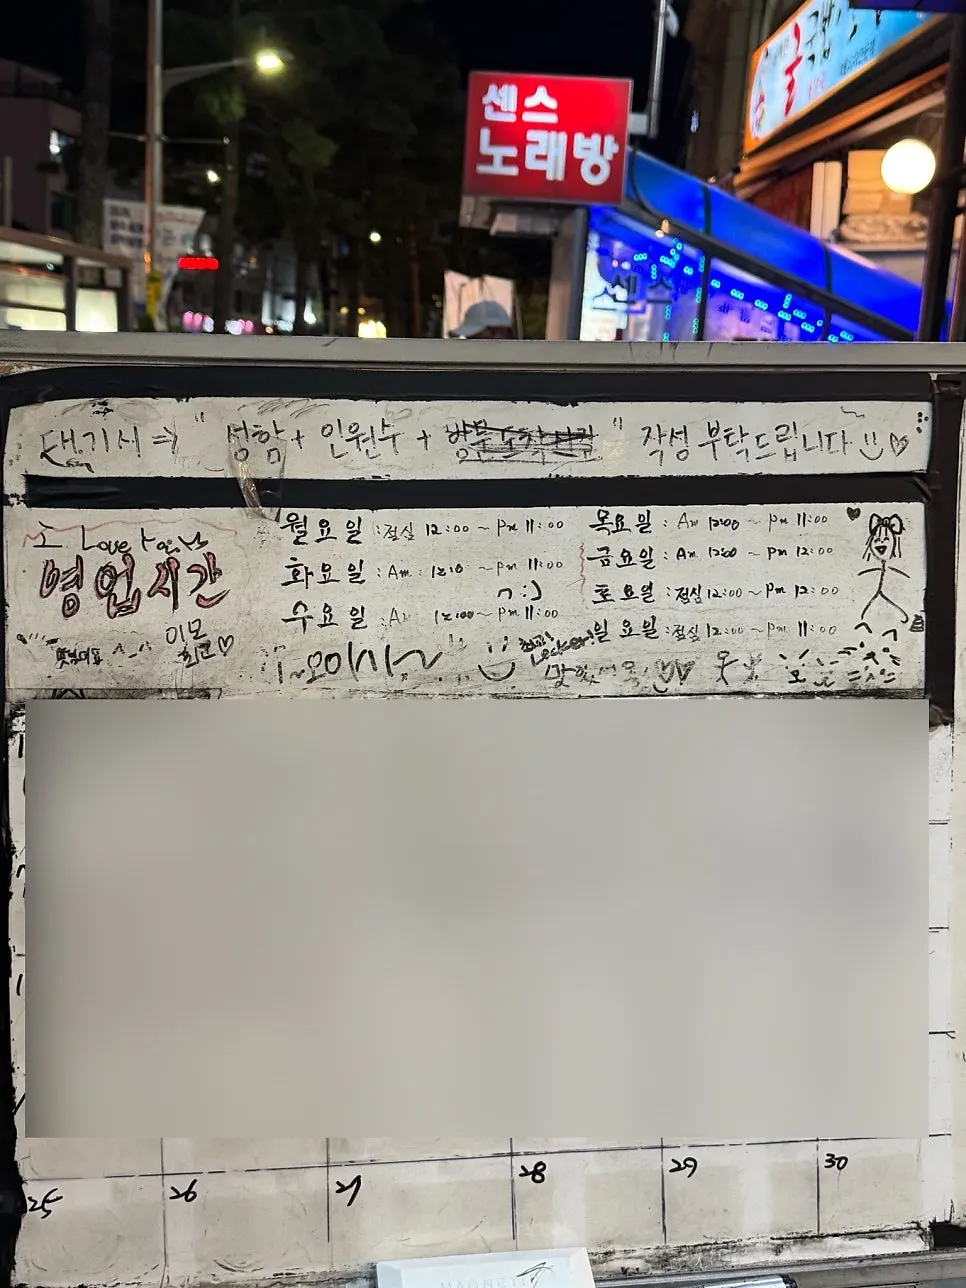 센스
노래방
센스
대기시 ⇒ " 성함 + 인원수 + " 작성 부탁드립니다
Love
영업시간
이모
최고♡
월요일 : 점심 12:00 ~ Pm 11:00
화요일 : Am 12:00 ~ Pm 11:00
수요일 : Am 12:00 ~ Pm 11:00
목요일 : Am 12:00 ~ Pm 11:00
금요일 : Am 12:00 ~ Pm 12:00
토요일 : 점심 12:00 ~ Pm 12:00
일요일 : 점심 12:00 ~ Pm 11:00
:)
25
26
27
28
29
30